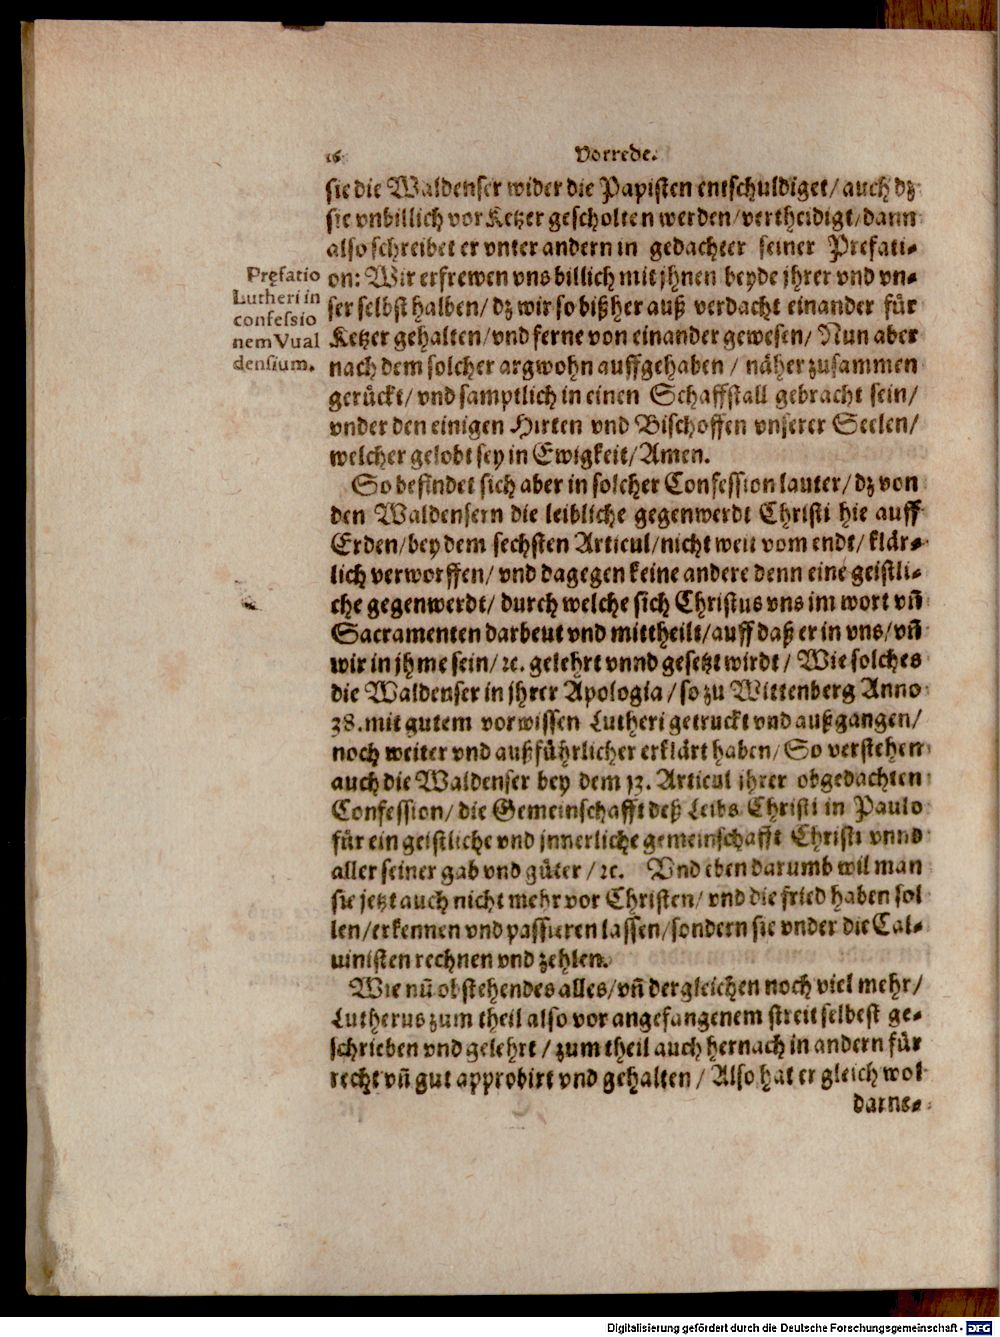 16 Vorrede.
sie die Waldenser wider die Papisten entschuldiget/ auch dz
sie vnbillich vor Ketzer gescholten werden/ vertheidigt/ dann
also schreibet er vnter andern in gedachter seiner Prefati-
on: Wir erfrewen vns billich mit jhnen beyde jhrer vnd vn-
ser selbst halben/ dz wir so bißher auß verdacht einander für
Ketzer gehalten/ vnd ferne von einander gewesen/ Nun aber
nach dem solcher argwohn auffgehaben / näher zusammen
gerückt/ vnd samptlich in einen Schaffstall gebracht sein/
vnder den einigen Hirten vnd Bischoffen vnserer Seelen/
welcher gelobt sey in Ewigkeit/ Amen.
Pręfatio
Lutheri in
confessio
nem Vual
densium.
So befindet sich aber in solcher Confession lauter/ dz von
den Waldensern die leibliche gegenwerdt Christi hie auff
Erden/ bey dem sechsten Articul/ nicht weit vom endt/ klär-
lich verworffen/ vnd dagegen keine andere denn eine geistli-
che gegenwerdt/ durch welche sich Christus vns im wort vñ
Sacramenten darbeut vnd mittheilt/ auff daß er in vns/ vñ
wir in jhme sein/ ꝛc. gelehrt vnnd gesetzt wirdt/ Wie solches
die Waldenser in jhrer Apologia / so zu Wittenberg Anno
38. mit gutem vorwissen Lutheri getruckt vnd außgangen/
noch weiter vnd außführlicher erklärt haben/ So verstehen
auch die Waldenser bey dem 13. Articul jhrer obgedachten
Confession/ die Gemeinschafft deß Leibs Christi in Paulo
für ein geistliche vnd jnnerliche gemeinschafft Christi vnnd
aller seiner gab vnd güter / ꝛc. Vnd eben darumb wil man
sie jetzt auch nicht mehr vor Christen/ vnd die fried haben sol
len/ erkennen vnd passieren lassen/ sondern sie vnder die Cal-
uinisten rechnen vnd zehlen.
Wie nũ obstehendes alles/ vñ dergleichen noch viel mehr/
Lutherus zum theil also vor angefangenem streit selbest ge-
schrieben vnd gelehrt / zum theil auch hernach in andern für
recht vñ gut approbirt vnd gehalten / Also hat er gleich wol
darne-
Digitalisierung gefördert durch die Deutsche Forschungsgemeinschaft - DFG